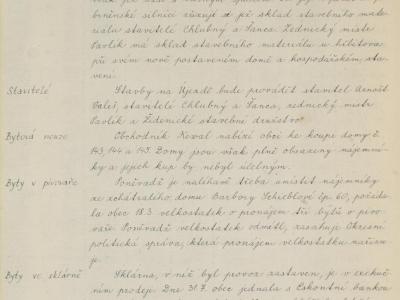 brněnské silnici zřizují si již sklad stavebního mate-
riálu stavitelé Chlubný a Šanca. Zednický mistr
Pavlík má sklad stavebního materiálu u hřbitova
při svém nově postaveném domě a hospodářském sta-
vení.
Stavitelé
Stavby na Újezdě bude provádět stavitel Arnošt
Valeš, stavitelé Chlubný a Šanca, zednický mistr
Pavlík a Židenické stavební družstvo.
Bytová nouze
Obchodník Kowal nabízí obci ke koupi domy č.
143, 144 a 145. Domy jsou však plně obsazeny nájemní-
ky a jejich koup by nebyl účelným.
Byty v pivovaře
Poněvadž je naléhavě třeba umístit nájemníky
ze zchátralého domu Barbory Schieblové čp. 60, požáda-
la obec 18.3. velkostatek o pronájem tří bytů v pivo-
vaře. Poněvadž velkostatek odmítl, zasahuje Okresní
politická správa, která pronájem velkostatku nařizu-
je.
Byty ve sklárně
Sklárna, v níž byl provoz zastaven, je v exekuč-
ním prodeji. Dne 31.7. obec jednala s Eskontní bankou